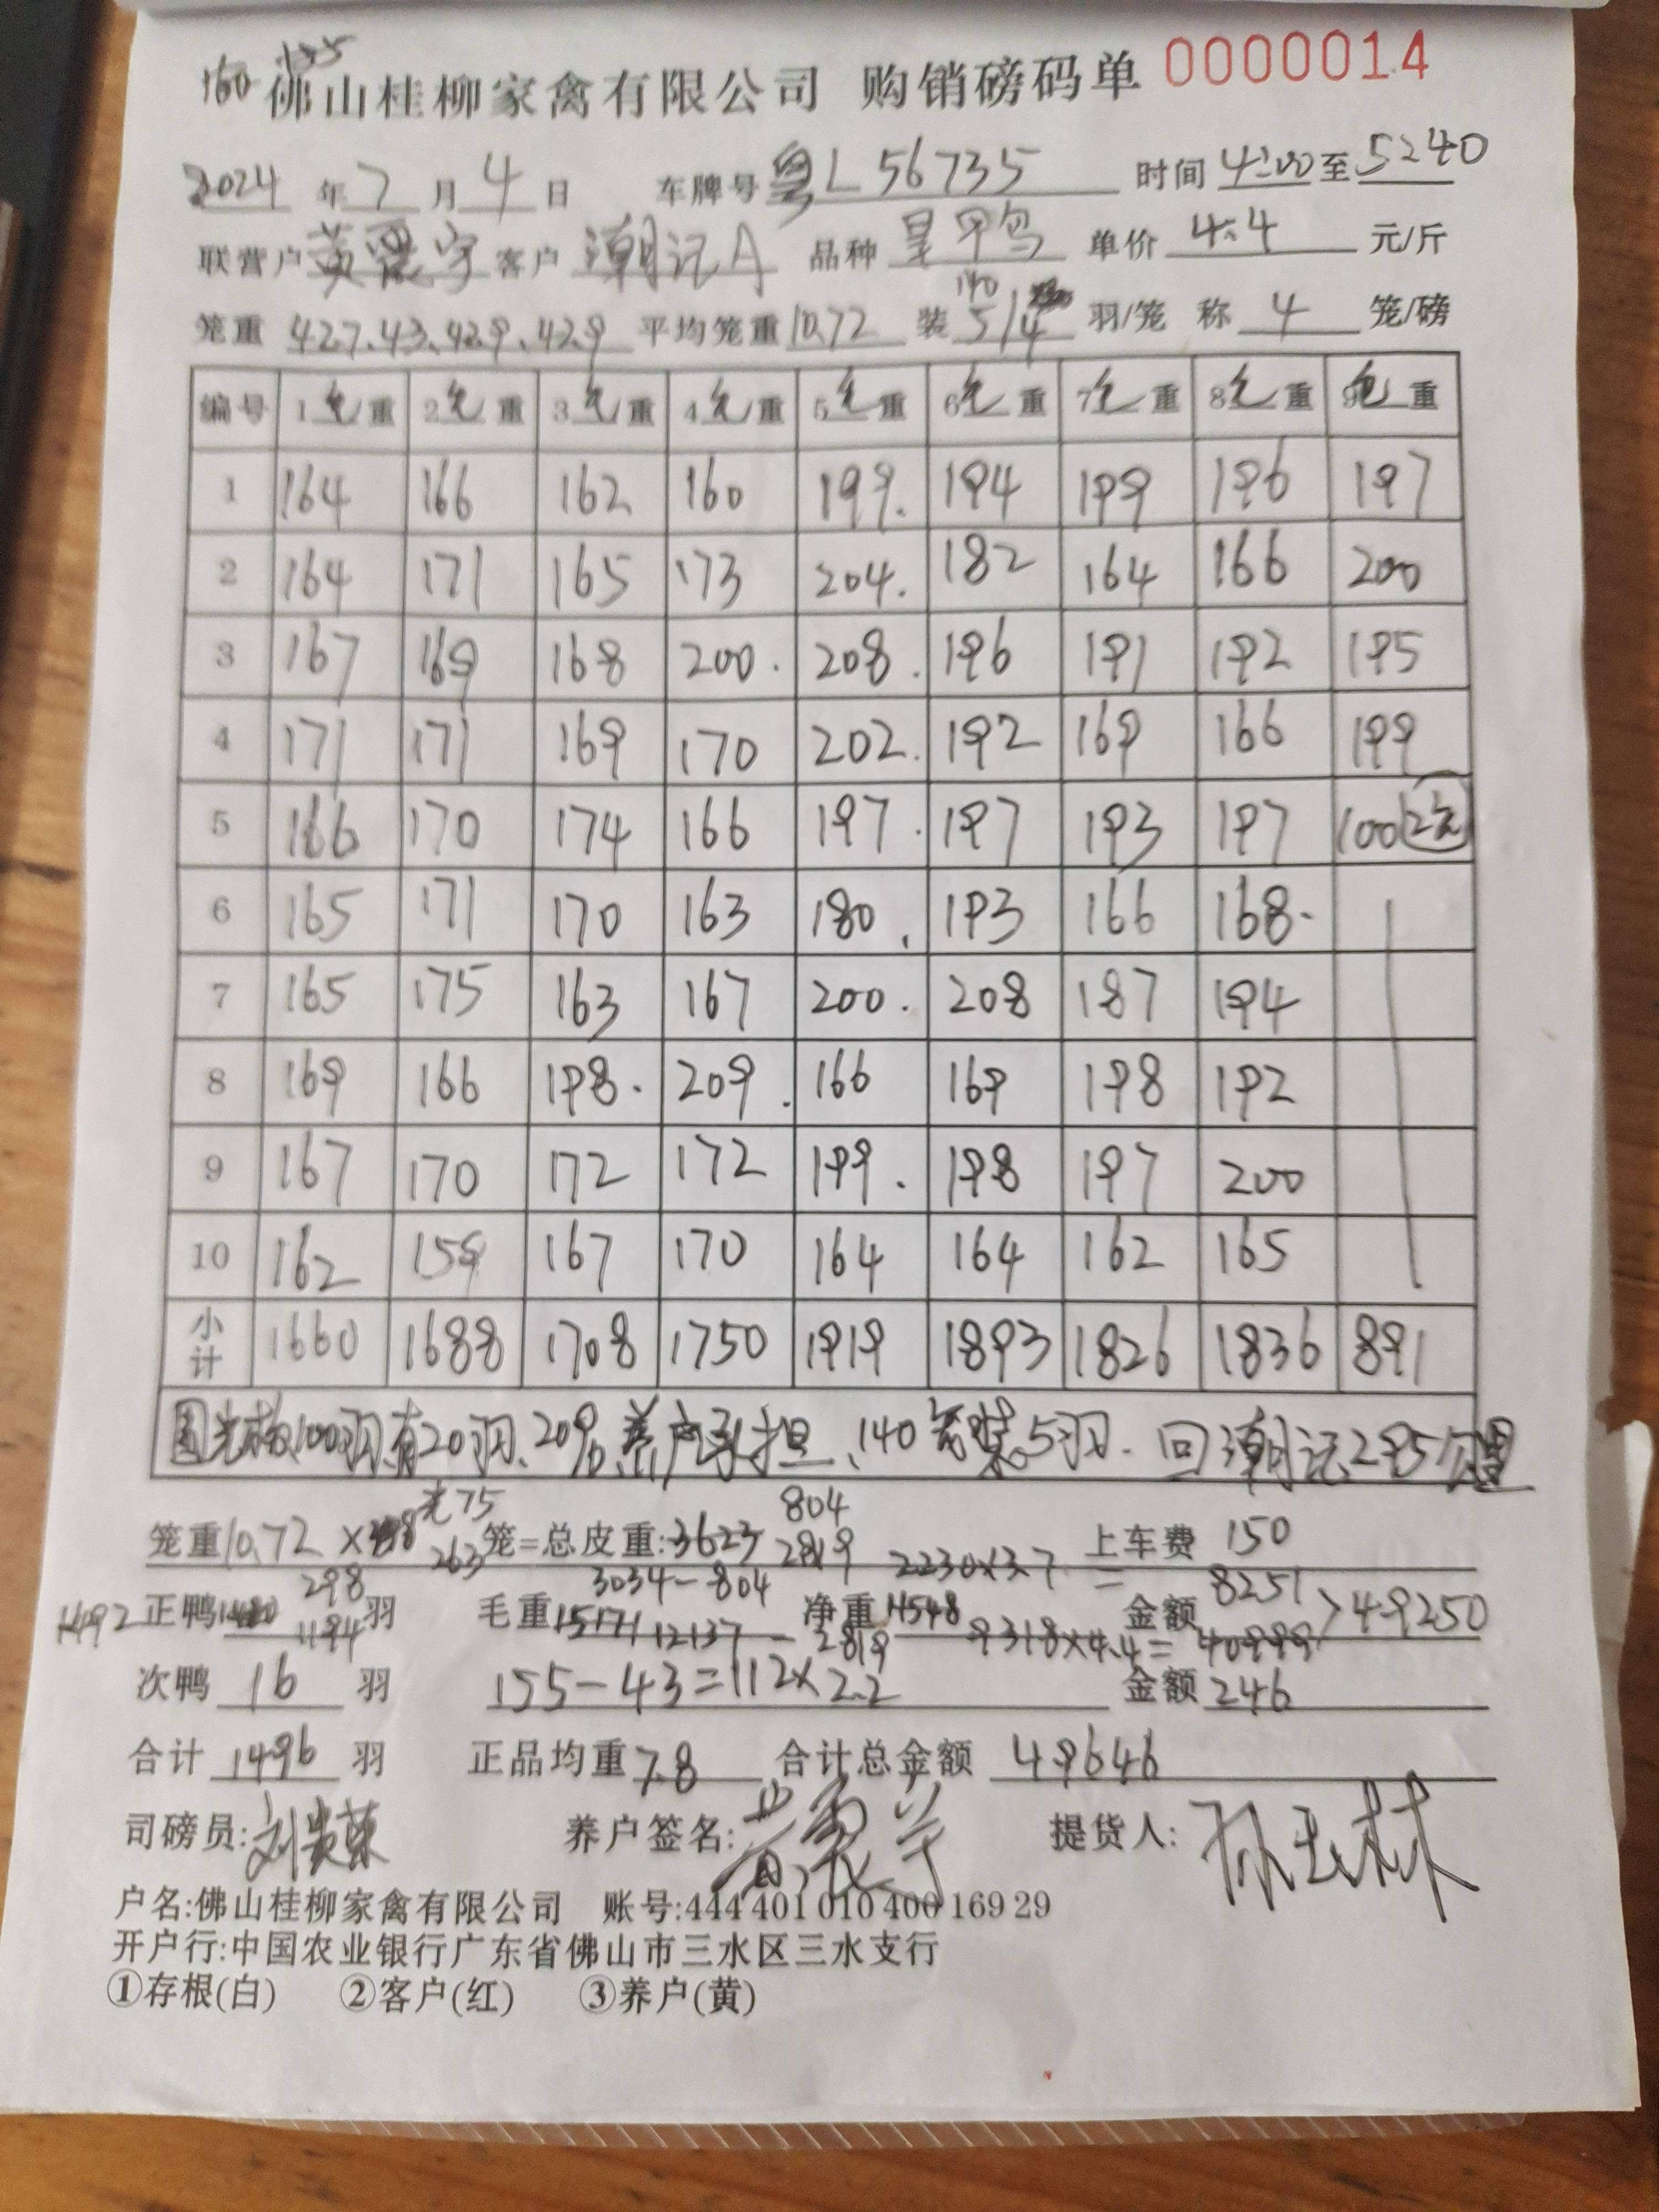 160 155
佛山桂柳家禽有限公司 购销磅码单 0000014
2024 年 7 月 4 日 车牌号 粤L 56735 时间 4:00 至 5:40
联营户 黄 宇 客户 潮记A 品种 单价 4.4 元/斤
140
笼重 42.7、43、42.9、42.9 平均笼重 10.72 装 5/4 羽/笼 称 4 笼/磅
编号 1毛重 2毛重 3毛重 4毛重 5毛重 6毛重 7毛重 8毛重 9毛重
1 164 166 162 160 199. 194 199 196 197
2 164 171 165 173 204. 182 164 166 200
3 167 169 168 200. 208. 196 191 192 195
4 171 171 169 170 202. 192 169 166 199
5 166 170 174 166 197. 197 193 197 100 (2笼)
6 165 171 170 163 180. 193 166 168.
7 165 175 163 167 200. 208 187 194
8 169 166 198. 209. 166 169 198 192
9 167 170 172 172 199. 198 197 200
10 162 159 167 170 164 164 162 165
小计 1660 1688 1708 1750 1919 1893 1826 1836 891
100羽有20羽、20% 养户承担、140笼装5羽. 回潮记295公里
光75 804
笼重 10.72 × 263 笼=总皮重: 3623 2819 2230×3.7 = 上车费 150
298 3034-804 8251
1492 正鸭 1480 1194 羽 毛重 15171 12137 - 2819 净重 11548 9318×4.4= 金额 40999 > 49250
次鸭 16 羽 155-43=112×2.2 金额 246
合计 1496 羽 正品均重 7.8 合计总金额 49646
司磅员: 刘贵荣 养户签名: 提货人:
户名:佛山桂柳家禽有限公司 账号:444 401 010 400 169 29
开户行:中国农业银行广东省佛山市三水区三水支行
①存根(白) ②客户(红) ③养户(黄)